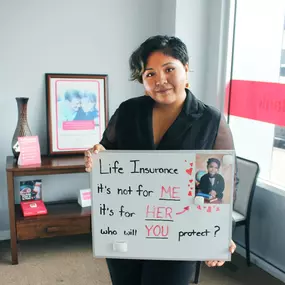 Life Insurance
It's not for ME
it's for HER
who will YOU protect?